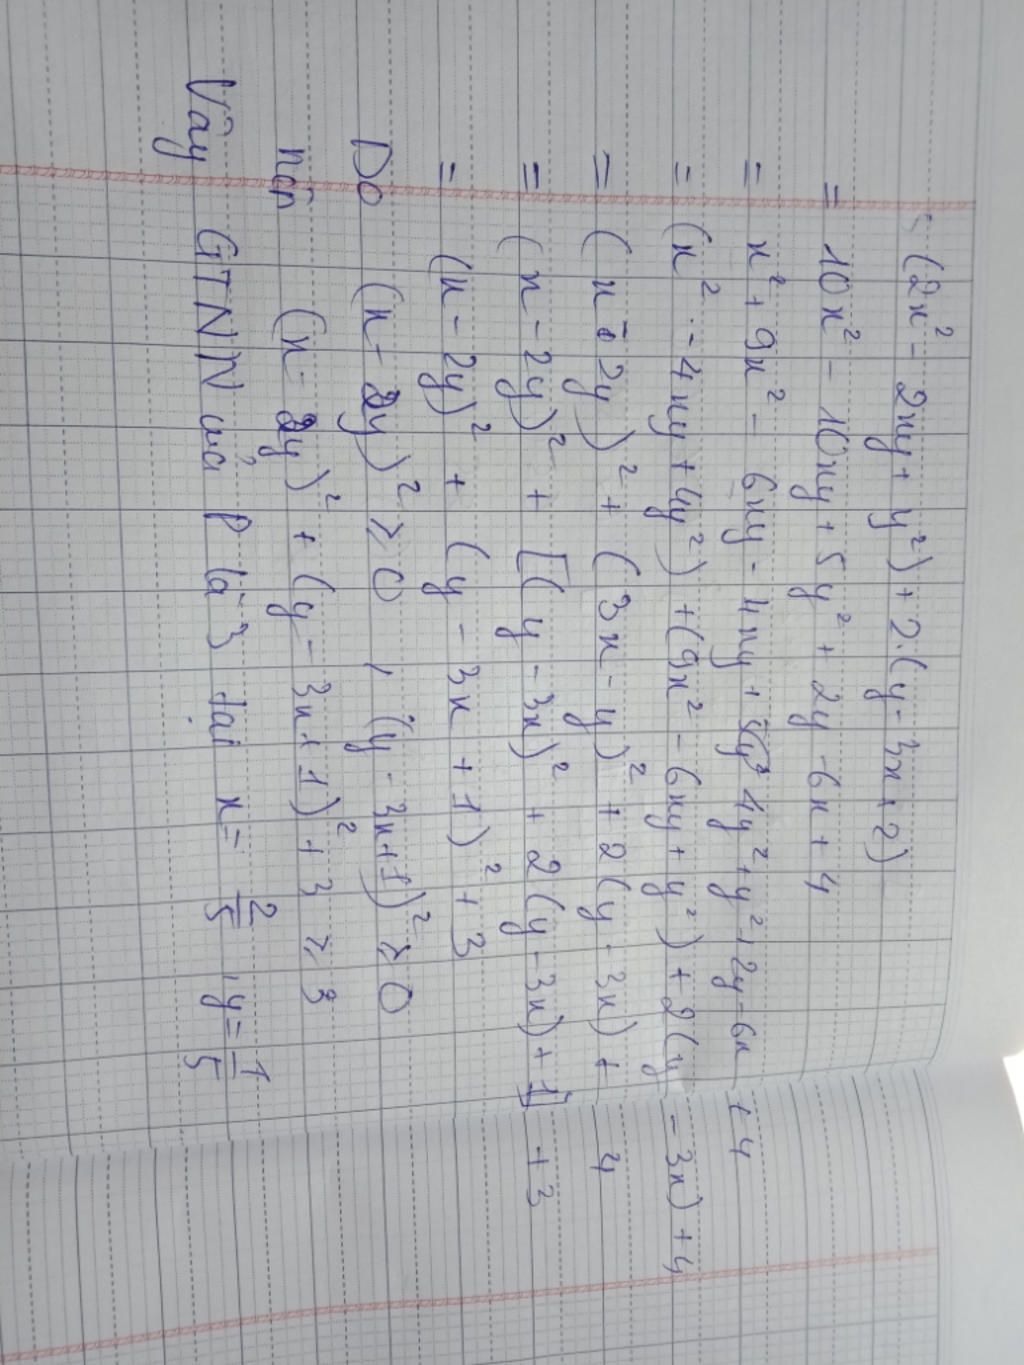 5(2x² - 2xy + y²) + 2.(y - 3x + 2)
= 10x² - 10xy + 5y² + 2y - 6x + 4
= x² + 9x² - 6xy - 4xy + 4y² + y² + 2y - 6x + 4
= (x² - 4xy + 4y²) + (9x² - 6xy + y²) + 2(y - 3x) + 4
= (x - 2y)² + (3x - y)² + 2(y - 3x) + 4
= (x - 2y)² + [(y - 3x)² + 2(y - 3x) + 1] + 3
= (x - 2y)² + (y - 3x + 1)² + 3
Do (x - 2y)² ≥ 0, (y - 3x + 1)² ≥ 0
nên (x - 2y)² + (y - 3x + 1)² + 3 ≥ 3
Vậy GTNN của P là 3 tại x = 2/5, y = 1/5